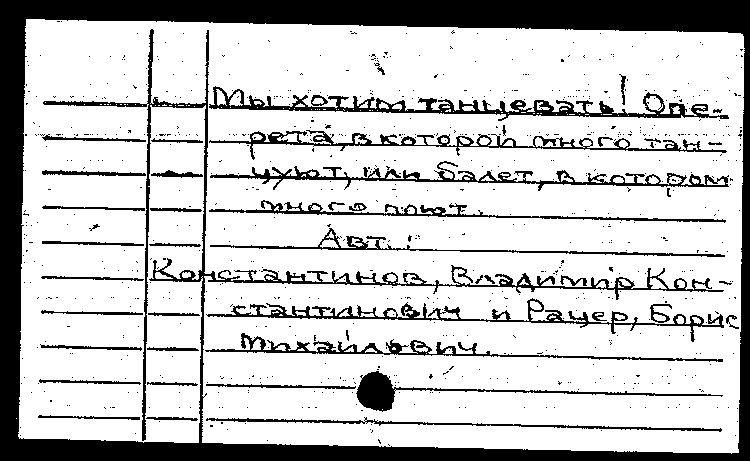 Мы хотим танцевать! Опе-
рета, в которой много тан-
цуют, или балет, в котором
много поют.
Авт.:
Константинов, Владимир Кон-
стантинович и Рацер, Борис
Михайлович.